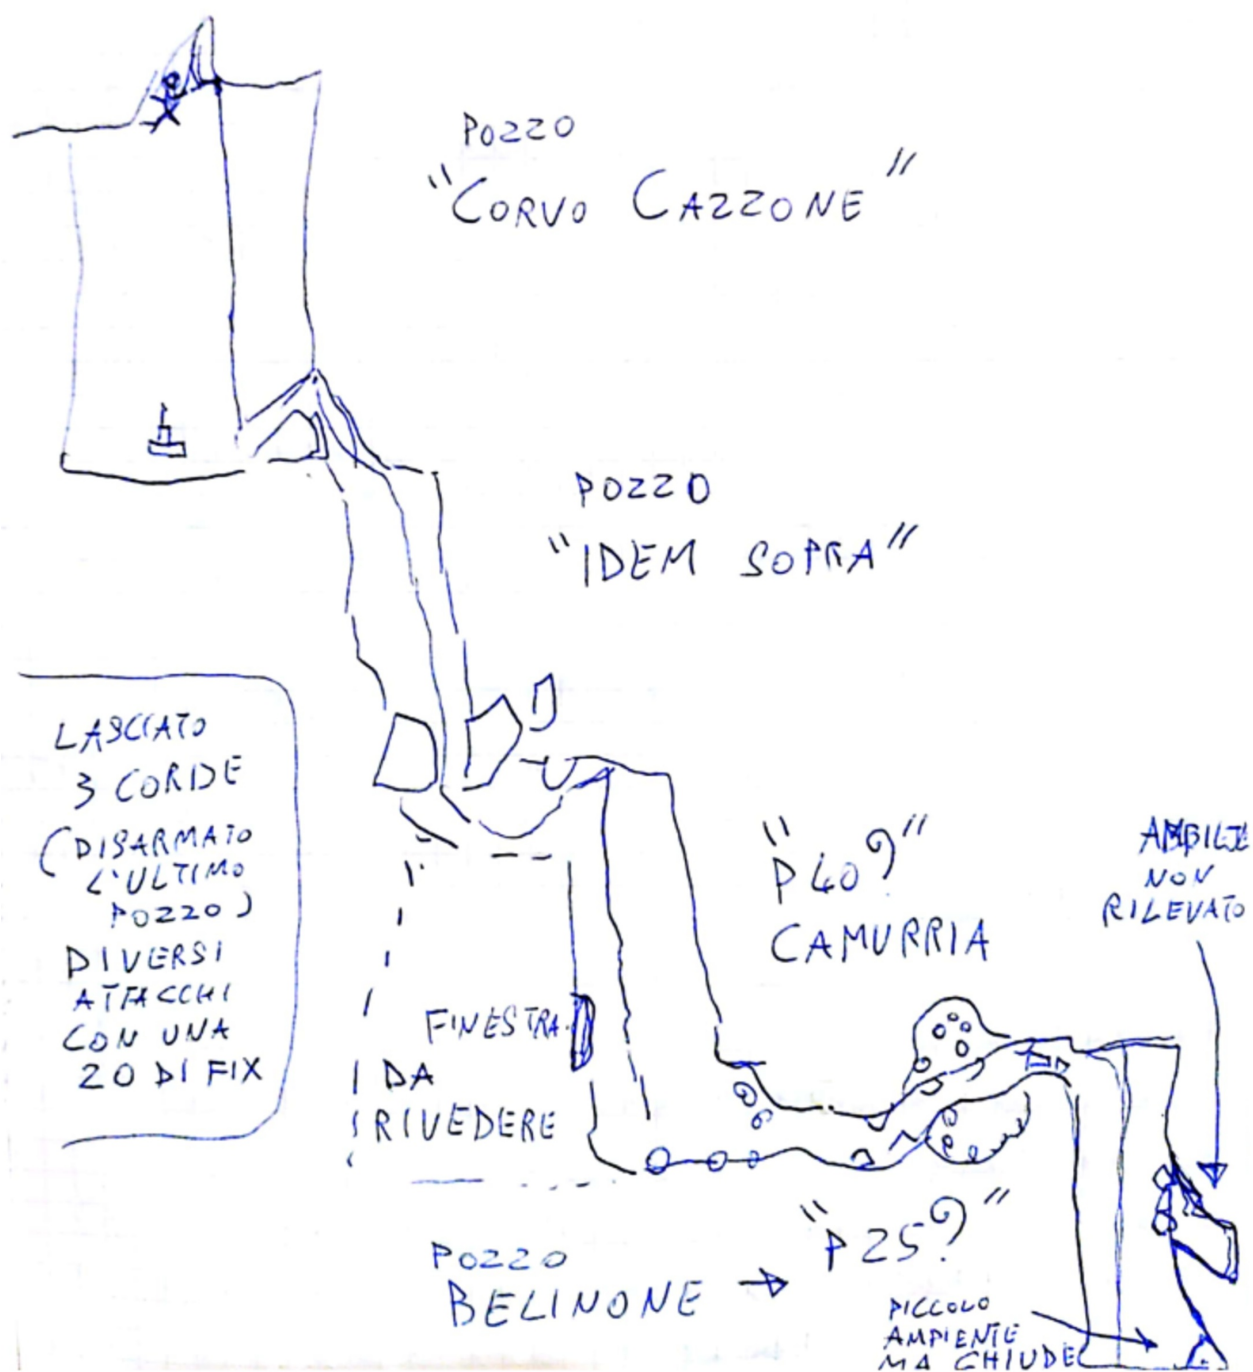 POZZO
"CORVO CAZZONE"
POZZO
"IDEM SOPRA"
LASCIATO
3 CORDE
(DISARMATO
L'ULTIMO
POZZO)
DIVERSI
ATTACCHI
CON UNA
20 DI FIX
"P40?"
CAMURRIA
NON
RILEVATO
FINESTRA
DA
RIVEDERE
POZZO
BELINONE → "P25?"
PICCOLO
AMPIENTE
MA CHIUDE